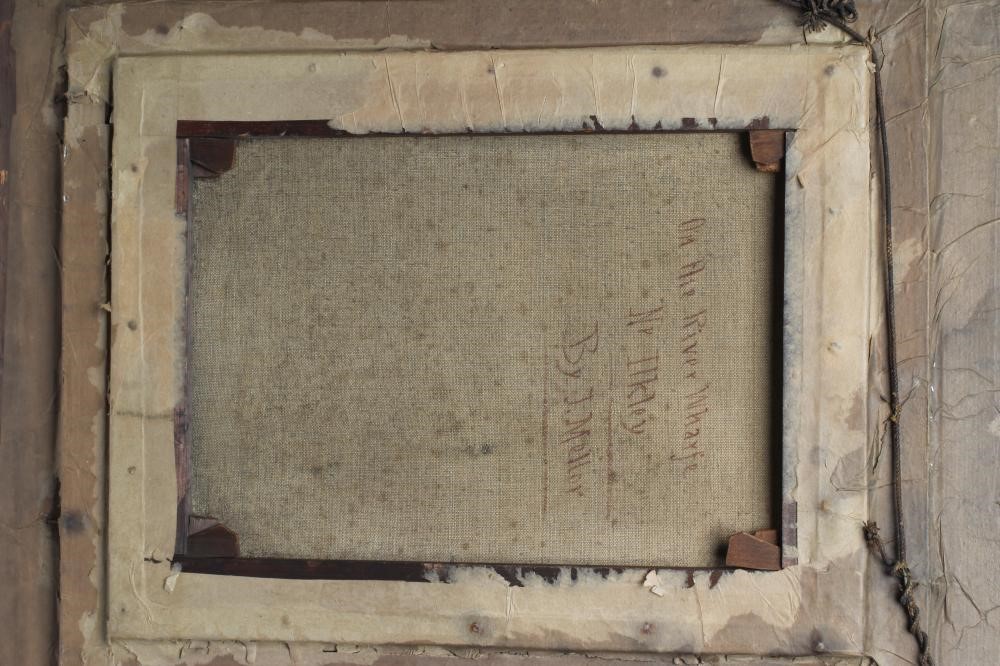 On the River Wharfe
Nr Ilkley
By J. Mellor